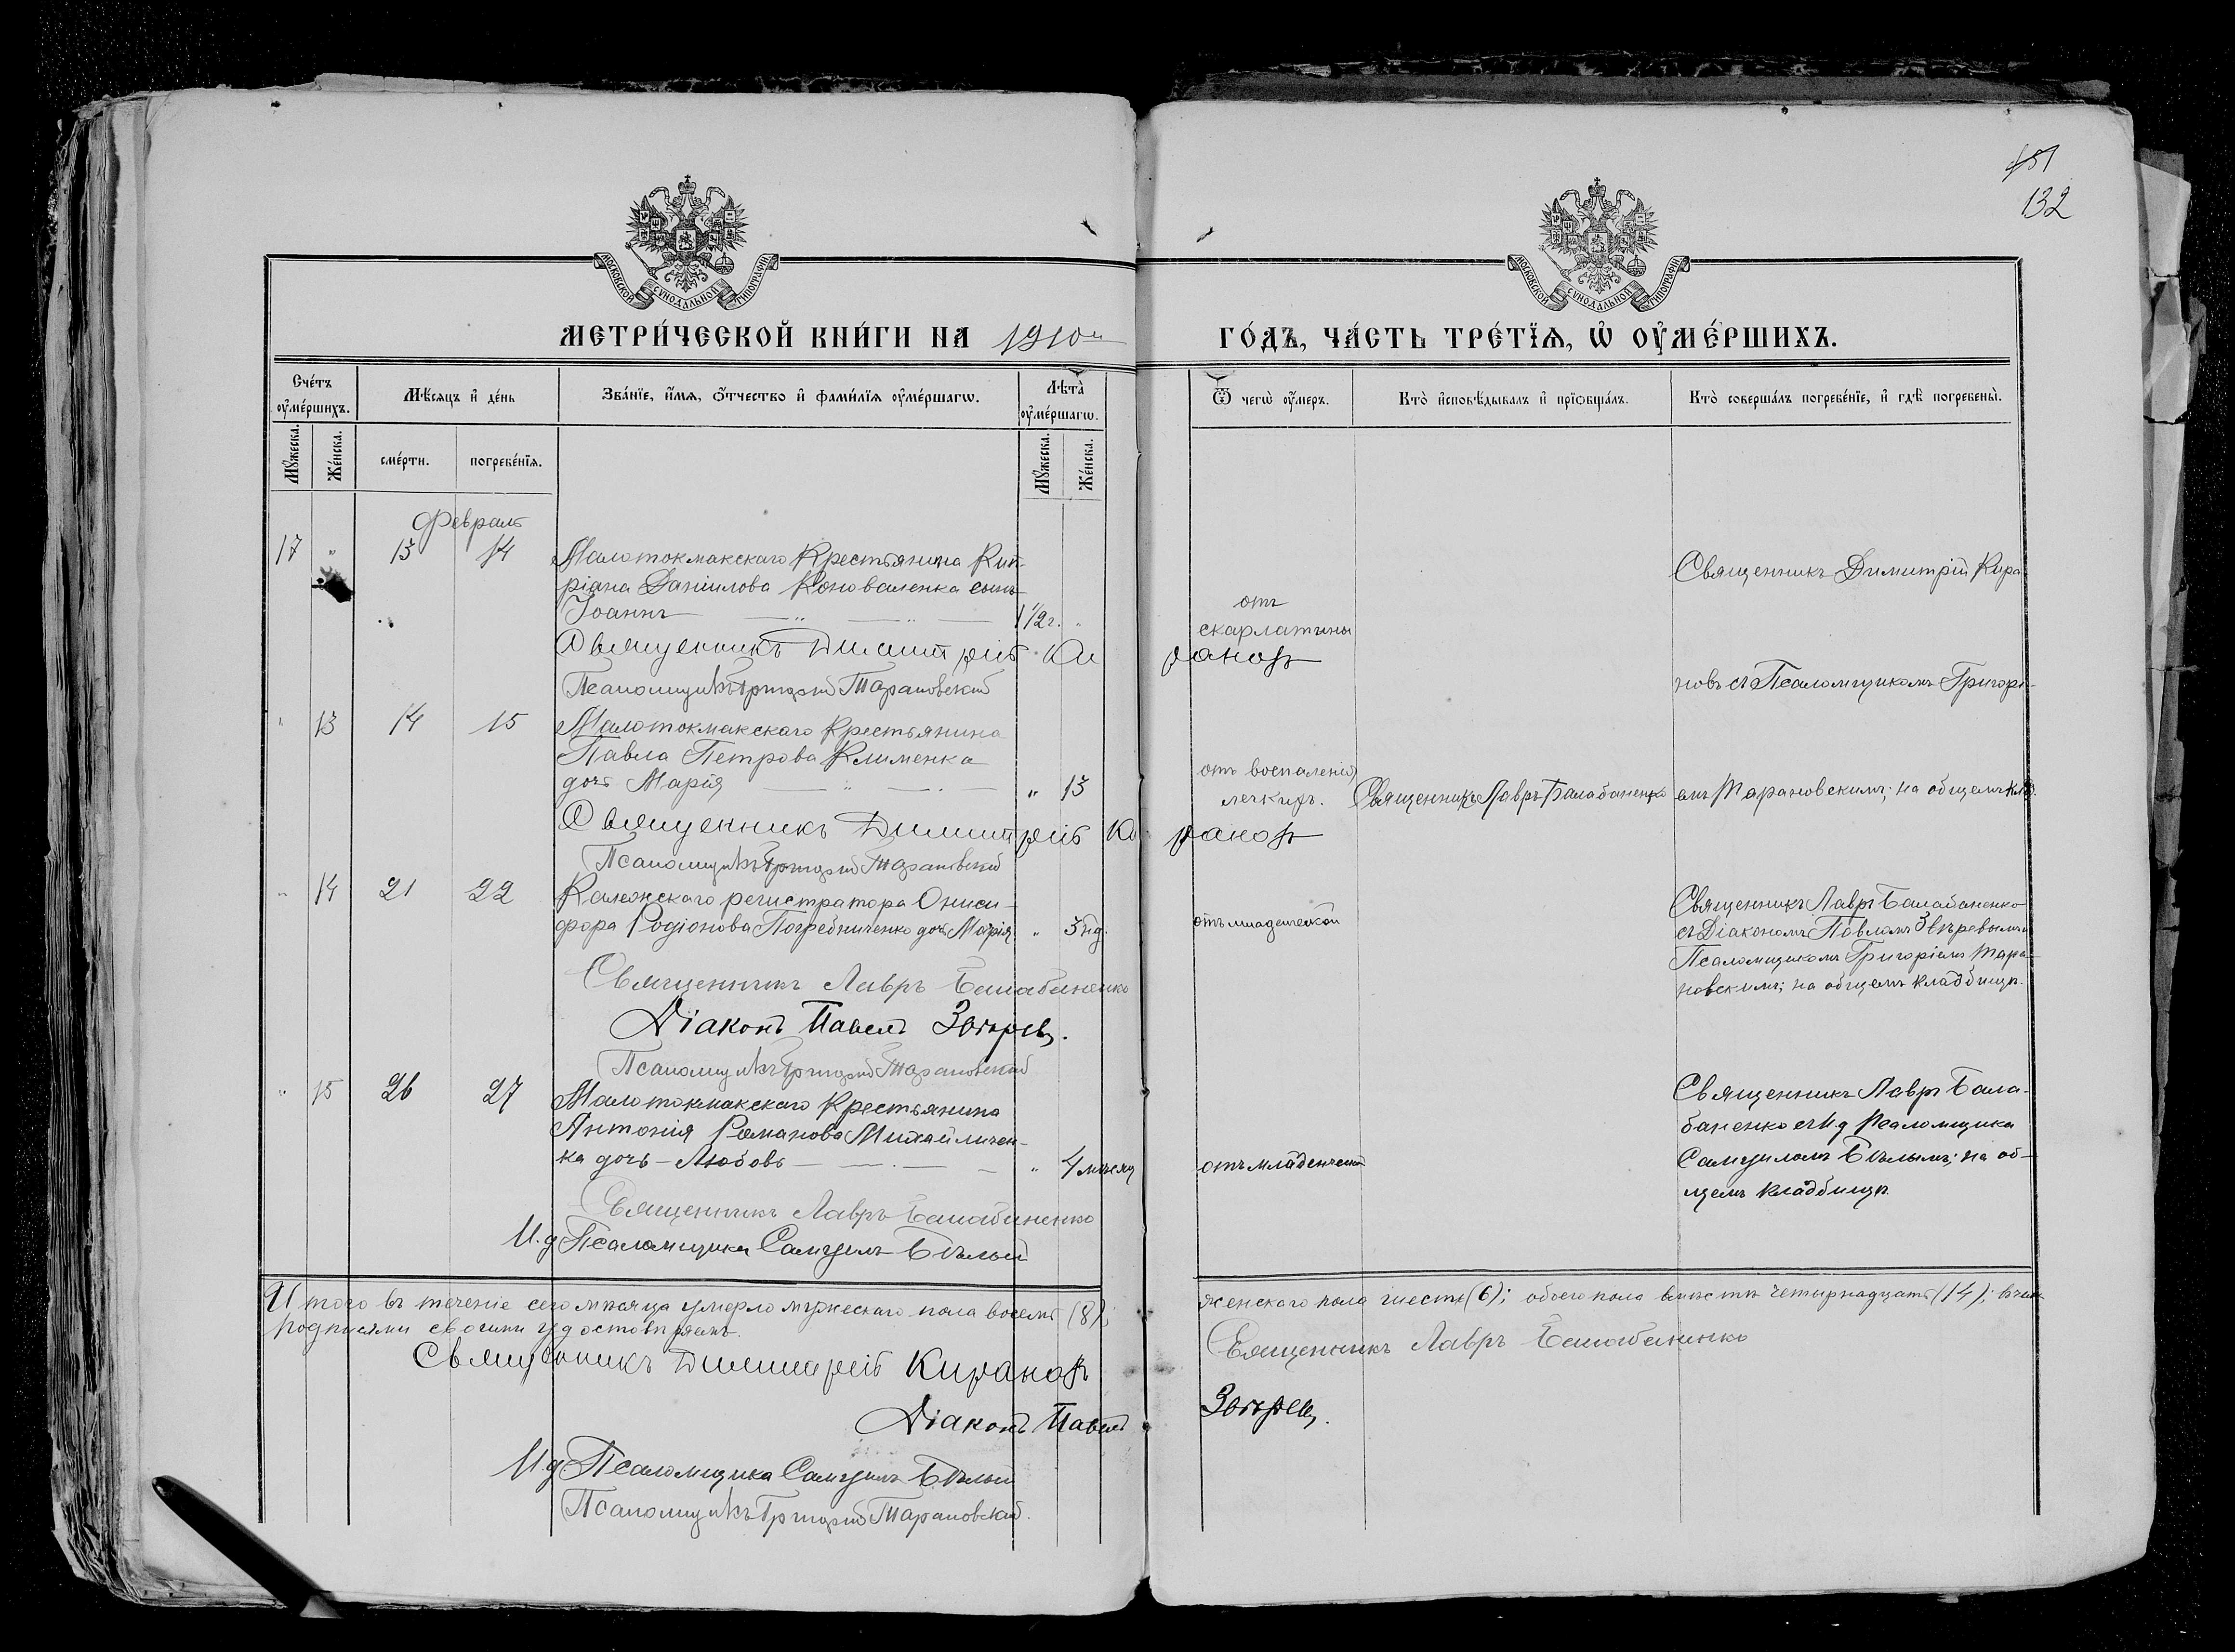 451
132
МОСКОВСКОЙ СѴНОДАЛЬНОЙ ТИПОГРАФІИ
МОСКОВСКОЙ СѴНОДАЛЬНОЙ ТИПОГРАФІИ
МЕТРИ́ЧЕСКОЙ КНИ́ГИ НА 1910й ГО́ДЪ, ЧА́СТЬ ТРЕ́ТЇѦ, Ѡ҆ ОУ҆МЕ́РШИХЪ.
Сче́тъ оу҆ме́ршихъ.
Мѣ́сѧцъ и҆ де́нь
Зва́нїе, и҆́мѧ, ѻ҆́тчество и҆ фами́лїѧ оу҆ме́ршагѡ.
Лѣта̀ оу҆ме́ршагѡ.
Ѿ чегѡ̀ оу҆́меръ.
Кто̀ и҆сповѣ́дывалъ и҆ прїѡбща́лъ.
Кто̀ соверша́лъ погребе́нїе, и҆ гдѣ̀ погребены̀.
Мꙋ́жеска.
Же́нска.
сме́рти.
погребе́нїѧ.
Мꙋ́жеска.
Же́нска.
Февраль
17 " 13 14 Малотокмакскаго Крестьянина Кип-
ріана Даніилова Коноваленка сынъ
Іоаннъ — " — " — 1 1/2 г. "
отъ
скарлатины
Священникъ Димитрій Кира-
Священникъ Димитрій Кирановъ
Псаломщикъ Григорій Тарановскій
новъ съ Псаломщикомъ Григорі-
" 13 14 15 Малотокмакскаго Крестьянина
Павла Петрова Клименка
дочь Марія — " — " — " 13
отъ воспаленія
легкихъ. Священникъ Лавръ Балабаненко емъ Тарановскимъ; на общемъ клад.
Священникъ Димитрій Кирановъ
Псаломщикъ Григорій Тарановскій
" 14 21 22 Колежскаго регистратора Ониси-
фора Родіонова Погребниченко дочь Марія " 3 нд. отъ младенческой
Священникъ Лавръ Балабаненко
съ Діакономъ Павломъ Звѣревымъ и
Псаломщикомъ Григоріемъ Тара-
новскимъ; на общемъ кладбищѣ.
Священникъ Лавръ Балабаненко
Діаконъ Павелъ Звѣревъ.
Псаломщикъ Григорій Тарановскій
" 15 26 27 Малотокмакскаго Крестьянина
Антонія Романова Михайличен-
ка дочь – Любовь — . — " 4 мѣсяц отъ младенческой
Священникъ Лавръ Бала-
баненко съ И.д Псаломщика
Самуиломъ Бѣлымъ; на об-
щемъ кладбищѣ.
Священникъ Лавръ Балабаненко
И.д Псаломщика Самуилъ Бѣлый
Итого въ теченіе сего мѣсяца умерло мужескаго пола восемь (8); женскаго пола шесть (6); обоего пола вмѣстѣ четырнадцать (14);
подписями своими удостовѣряемъ.
Священникъ Димитрій Кирановъ Священникъ Лавръ Балабаненко
Діаконъ Павелъ Звѣревъ.
И.д Псаломщика Самуилъ Бѣлый
Псаломщикъ Григорій Тарановскій.